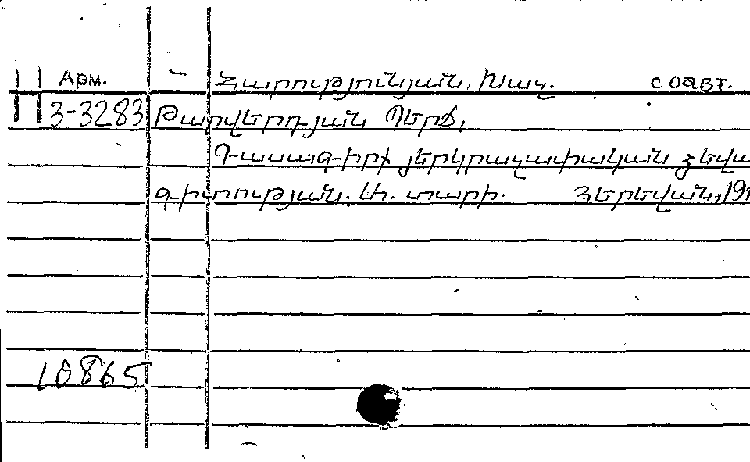 Арм. Հարությունյան, Խաչ. соавт.
3-3283 Թադևոսյան Պերճ,
Դասագիրք յերկրաչափական
գիտության. Ա. տարի. Յերեվան, 19
10865